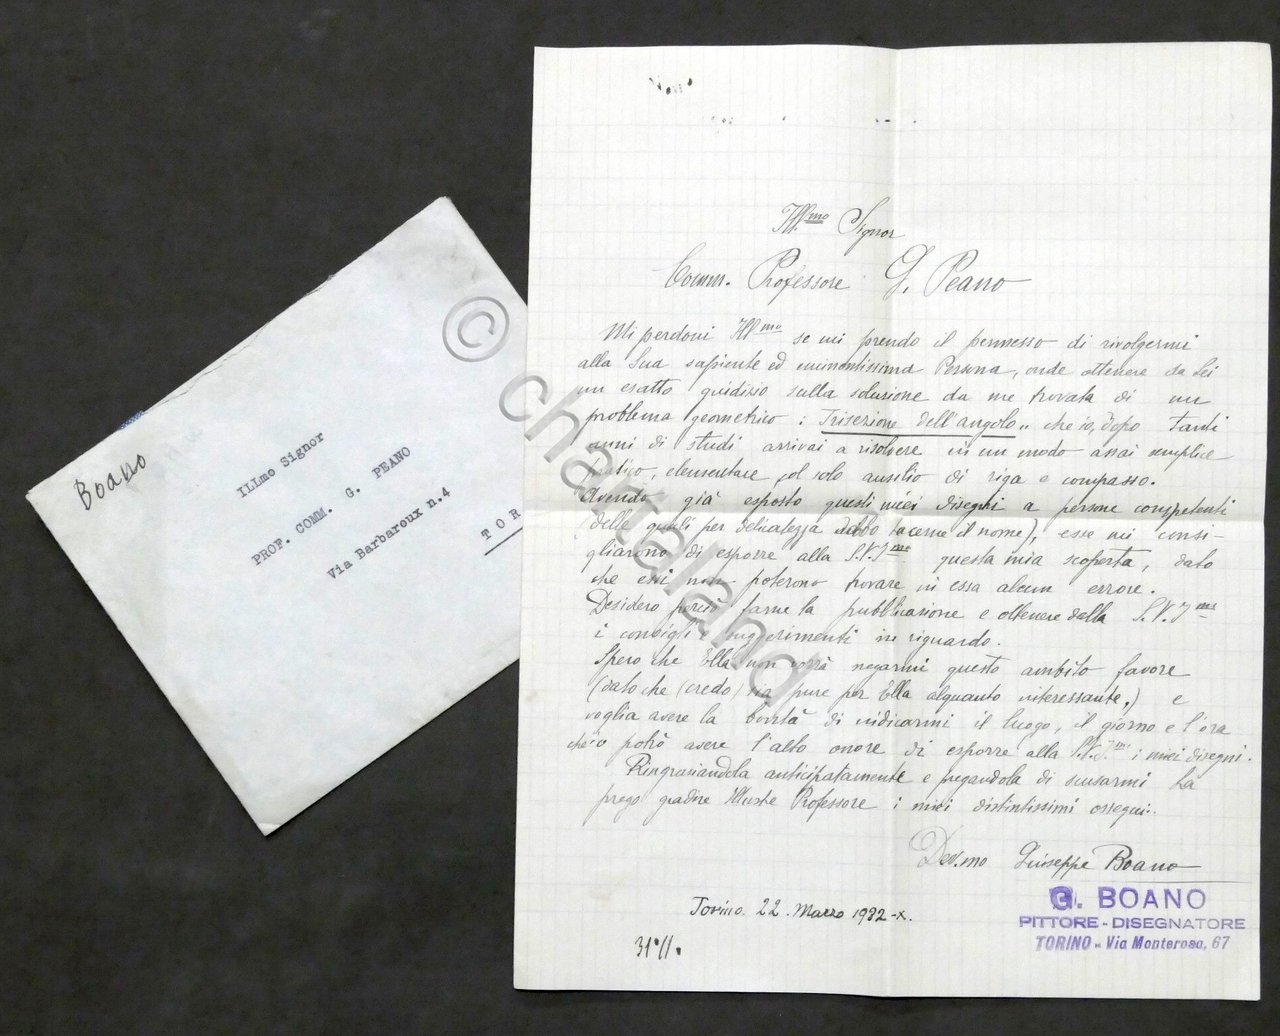 Boano
ILLmo Signor
PROF. COMM. G. PEANO
Via Barbaroux n.4
TOR
© chartaland
Ill.mo Signor
Comm. Professore G. Peano
Mi perdoni Ill.mo se mi prendo il permesso di rivolgermi
alla Sua sapiente ed eminentissima Persona, onde ottenere da Lei
un esatto giudizio sulla soluzione da me trovata di un
problema geometrico: Trisezione dell'angolo„ che io, dopo tanti
anni di studi arrivai a risolvere in un modo assai semplice
pratico, elementare col solo ausilio di riga e compasso.
Avendo già esposto questi miei disegni a persone competenti
(delle quali per delicatezza debbo tacerne il nome), esse mi consi-
gliarono di esporre alla S.V.I.ma questa mia scoperta, dato
che essi non poterono trovare in essa alcun errore.
Desidero perciò farne la pubblicazione e ottenere della S.V.I.ma
i consigli e suggerimenti in riguardo.
Spero che Ella non vorrà negarmi questo ambito favore
(dato che (credo) sia pure per Ella alquanto interessante,) e
voglia avere la bontà di indicarmi il luogo, il giorno e l'ora
che io potrò avere l'alto onore di esporre alla S.V.I.ma i miei disegni.
Ringraziandola anticipatamente e pregandola di scusarmi La
prego gradire Illustre Professore i miei distintissimi ossequi.
Dev.mo Giuseppe Boano
G. BOANO
PITTORE-DISEGNATORE
TORINO - Via Monterosa, 67
Torino. 22. Marzo 1932-X.